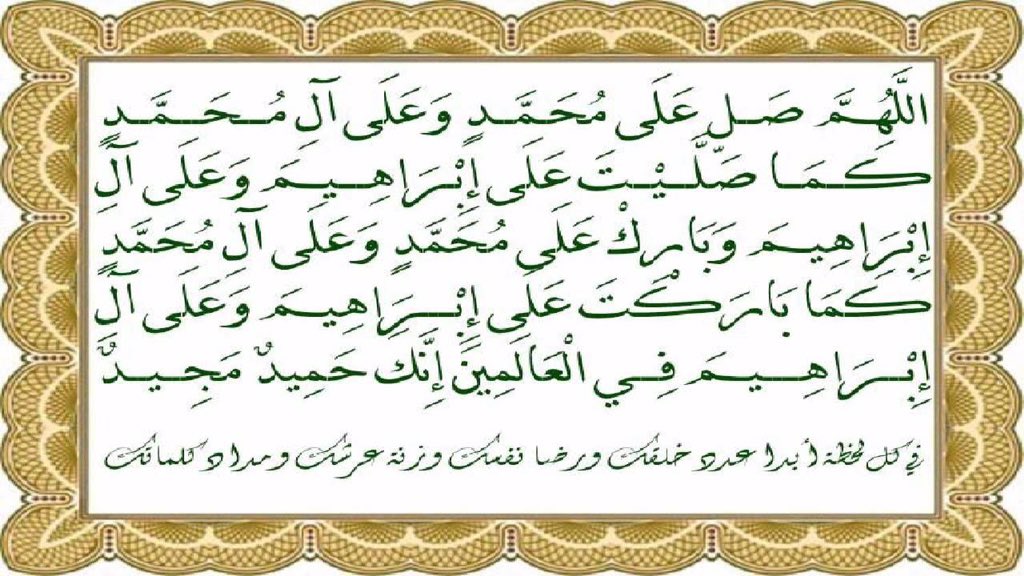 اللَّهُمَّ صَلِ عَلَى مُحَمَّدٍ وَعَلَى آلِ مُحَمَّدٍ
كَمَا صَلَّيْتَ عَلَى إِبْرَاهِيمَ وَعَلَى آلِ
إِبْرَاهِيمَ وَبَارِكْ عَلَى مُحَمَّدٍ وَعَلَى آلِ مُحَمَّدٍ
كَمَا بَارَكْتَ عَلَى إِبْرَاهِيمَ وَعَلَى آلِ
إِبْرَاهِيمَ فِي الْعَالَمِينَ إِنَّك حَمِيدٌ مَجِيدٌ
في كل لحظة أبدا عدد خلقك ورضا نفسك وزنة عرشك ومداد كلماتك